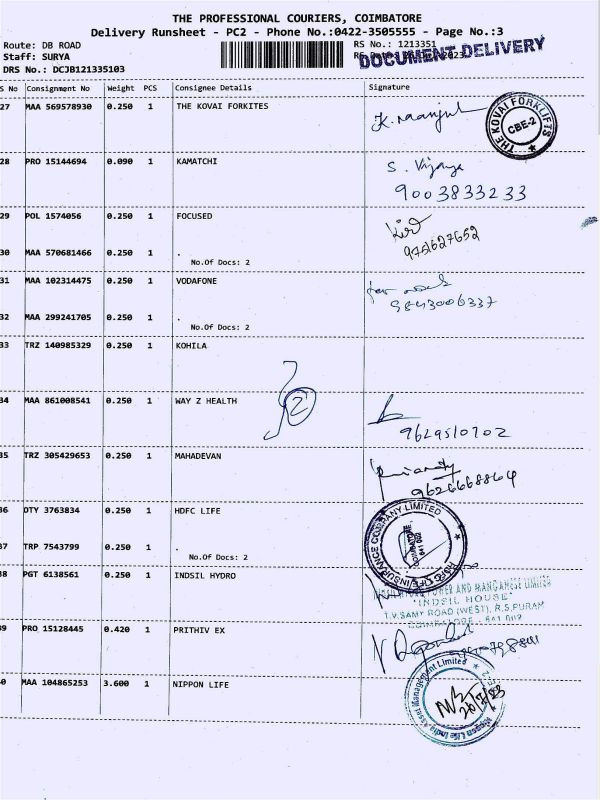 THE PROFESSIONAL COURIERS, COIMBATORE
Delivery Runsheet - PC2 - Phone No.:0422-3505555 - Page No.:3
Route: DB ROAD
RS No.: 1213351
Staff: SURYA
DOCUMENT DELIVERY
DRS No.: DCJB121335103
S No Consignment No Weight PCS Consignee Details Signature
27 MAA 569578930 0.250 1 THE KOVAI FORKITES
THE KOVAI FORKLIFTS
CBE-2
28 PRO 15144694 0.090 1 KAMATCHI
S. Vijaya
9003833233
29 POL 1574056 0.250 1 FOCUSED
30 MAA 570681466 0.250 1 .
No.Of Docs: 2
9751627652
31 MAA 102314475 0.250 1 VODAFONE
9843006337
32 MAA 299241705 0.250 1 .
No.Of Docs: 2
33 TRZ 140985329 0.250 1 KOHILA
34 MAA 861008541 0.250 1 WAY Z HEALTH
2
9629510702
35 TRZ 305429653 0.250 1 MAHADEVAN
9626668864
36 DTY 3763834 0.250 1 HDFC LIFE
HDFC LIFE INSURANCE COMPANY LIMITED
COIMBATORE
37 TRP 7543799 0.250 1 .
No.Of Docs: 2
38 PGT 6138561 0.250 1 INDSIL HYDRO
POWER AND MANGANESE LIMITED
"INDSIL HOUSE"
T.V.SAMY ROAD (WEST), R.S.PURAM
COIMBATORE - 641 002
39 PRO 15128445 0.420 1 PRITHIV EX
0 MAA 104865253 3.600 1 NIPPON LIFE
Nippon Life India Asset Management Limited